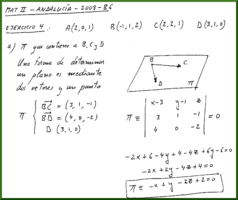 MAT II - ANDALUCÍA - 2008 - B6
EJERCICIO 4: A(2,0,1) B(-1,1,2) C(2,2,1) D(3,1,0)
a) π que contiene a B, C y D
Una forma de determinar
un plano es mediante
dos vectores y un punto
B C D π
π { BC = (3, 1, -1)
BD = (4, 0, -2)
D (3,1,0)
π ≡ | x-3 y-1 z |
| 3 1 -1 | = 0
| 4 0 -2 |
-2x+6-4y+4-4z+6y-6=0
-2x+2y-4z+4=0
π ≡ -x+y-2z+2=0